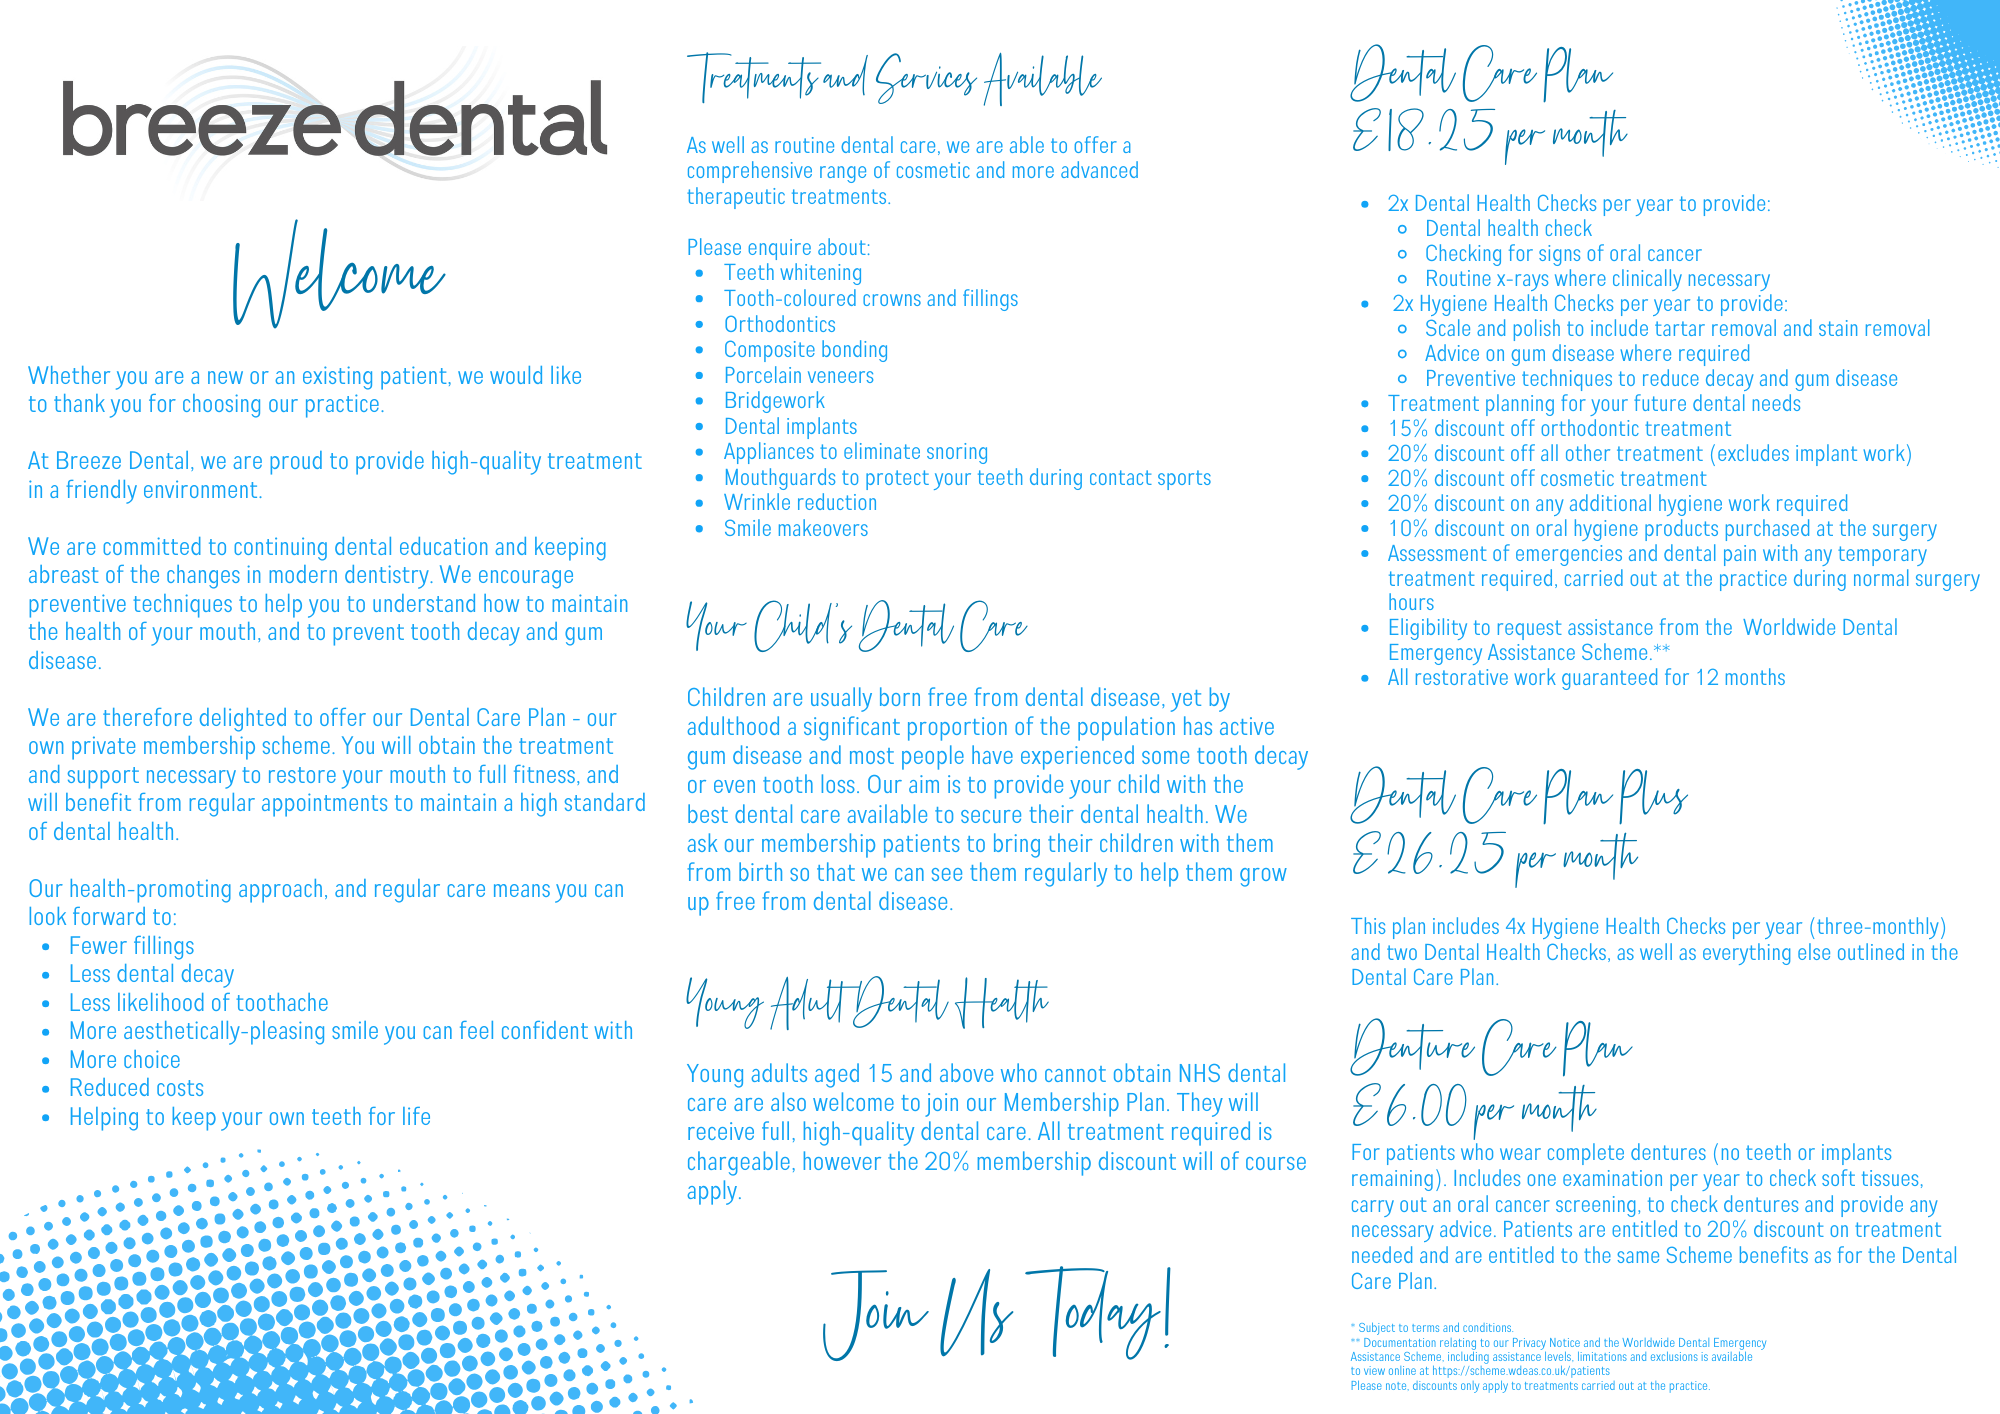 breeze dental
Welcome
Whether you are a new or an existing patient, we would like
to thank you for choosing our practice.
At Breeze Dental, we are proud to provide high-quality treatment
in a friendly environment.
We are committed to continuing dental education and keeping
abreast of the changes in modern dentistry. We encourage
preventive techniques to help you to understand how to maintain
the health of your mouth, and to prevent tooth decay and gum
disease.
We are therefore delighted to offer our Dental Care Plan - our
own private membership scheme. You will obtain the treatment
and support necessary to restore your mouth to full fitness, and
will benefit from regular appointments to maintain a high standard
of dental health.
Our health-promoting approach, and regular care means you can
look forward to:
• Fewer fillings
• Less dental decay
• Less likelihood of toothache
• More aesthetically-pleasing smile you can feel confident with
• More choice
• Reduced costs
• Helping to keep your own teeth for life
Treatments and Services Available
As well as routine dental care, we are able to offer a
comprehensive range of cosmetic and more advanced
therapeutic treatments.
Please enquire about:
• Teeth whitening
• Tooth-coloured crowns and fillings
• Orthodontics
• Composite bonding
• Porcelain veneers
• Bridgework
• Dental implants
• Appliances to eliminate snoring
• Mouthguards to protect your teeth during contact sports
• Wrinkle reduction
• Smile makeovers
Your Child's Dental Care
Children are usually born free from dental disease, yet by
adulthood a significant proportion of the population has active
gum disease and most people have experienced some tooth decay
or even tooth loss. Our aim is to provide your child with the
best dental care available to secure their dental health. We
ask our membership patients to bring their children with them
from birth so that we can see them regularly to help them grow
up free from dental disease.
Young Adult Dental Health
Young adults aged 15 and above who cannot obtain NHS dental
care are also welcome to join our Membership Plan. They will
receive full, high-quality dental care. All treatment required is
chargeable, however the 20% membership discount will of course
apply.
Join Us Today!
Dental Care Plan
£18.25 per month
• 2x Dental Health Checks per year to provide:
◦ Dental health check
◦ Checking for signs of oral cancer
◦ Routine x-rays where clinically necessary
• 2x Hygiene Health Checks per year to provide:
◦ Scale and polish to include tartar removal and stain removal
◦ Advice on gum disease where required
◦ Preventive techniques to reduce decay and gum disease
• Treatment planning for your future dental needs
• 15% discount off orthodontic treatment
• 20% discount off all other treatment (excludes implant work)
• 20% discount off cosmetic treatment
• 20% discount on any additional hygiene work required
• 10% discount on oral hygiene products purchased at the surgery
• Assessment of emergencies and dental pain with any temporary
treatment required, carried out at the practice during normal surgery
hours
• Eligibility to request assistance from the Worldwide Dental
Emergency Assistance Scheme.**
• All restorative work guaranteed for 12 months
Dental Care Plan Plus
£26.25 per month
This plan includes 4x Hygiene Health Checks per year (three-monthly)
and two Dental Health Checks, as well as everything else outlined in the
Dental Care Plan.
Denture Care Plan
£6.00 per month
For patients who wear complete dentures (no teeth or implants
remaining). Includes one examination per year to check soft tissues,
carry out an oral cancer screening, to check dentures and provide any
necessary advice. Patients are entitled to 20% discount on treatment
needed and are entitled to the same Scheme benefits as for the Dental
Care Plan.
* Subject to terms and conditions.
** Documentation relating to our Privacy Notice and the Worldwide Dental Emergency
Assistance Scheme, including assistance levels, limitations and exclusions is available
to view online at https://scheme.wdeas.co.uk/patients
Please note, discounts only apply to treatments carried out at the practice.